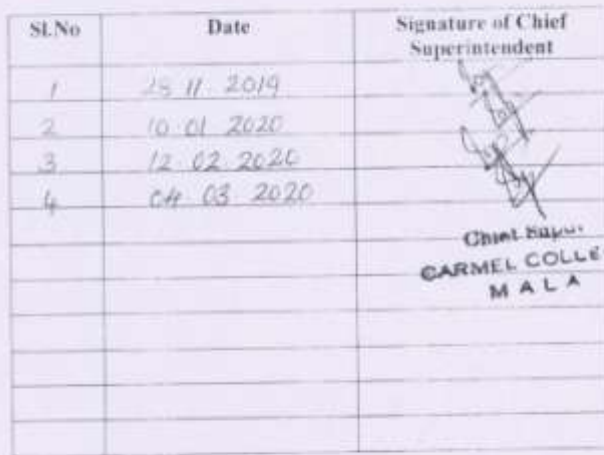 Sl.No Date Signature of Chief Superintendent
1 28 11 2019
2 10 01 2020
3 12 02 2020
4 04 03 2020
Chief Supd.
CARMEL COLLE
MALA